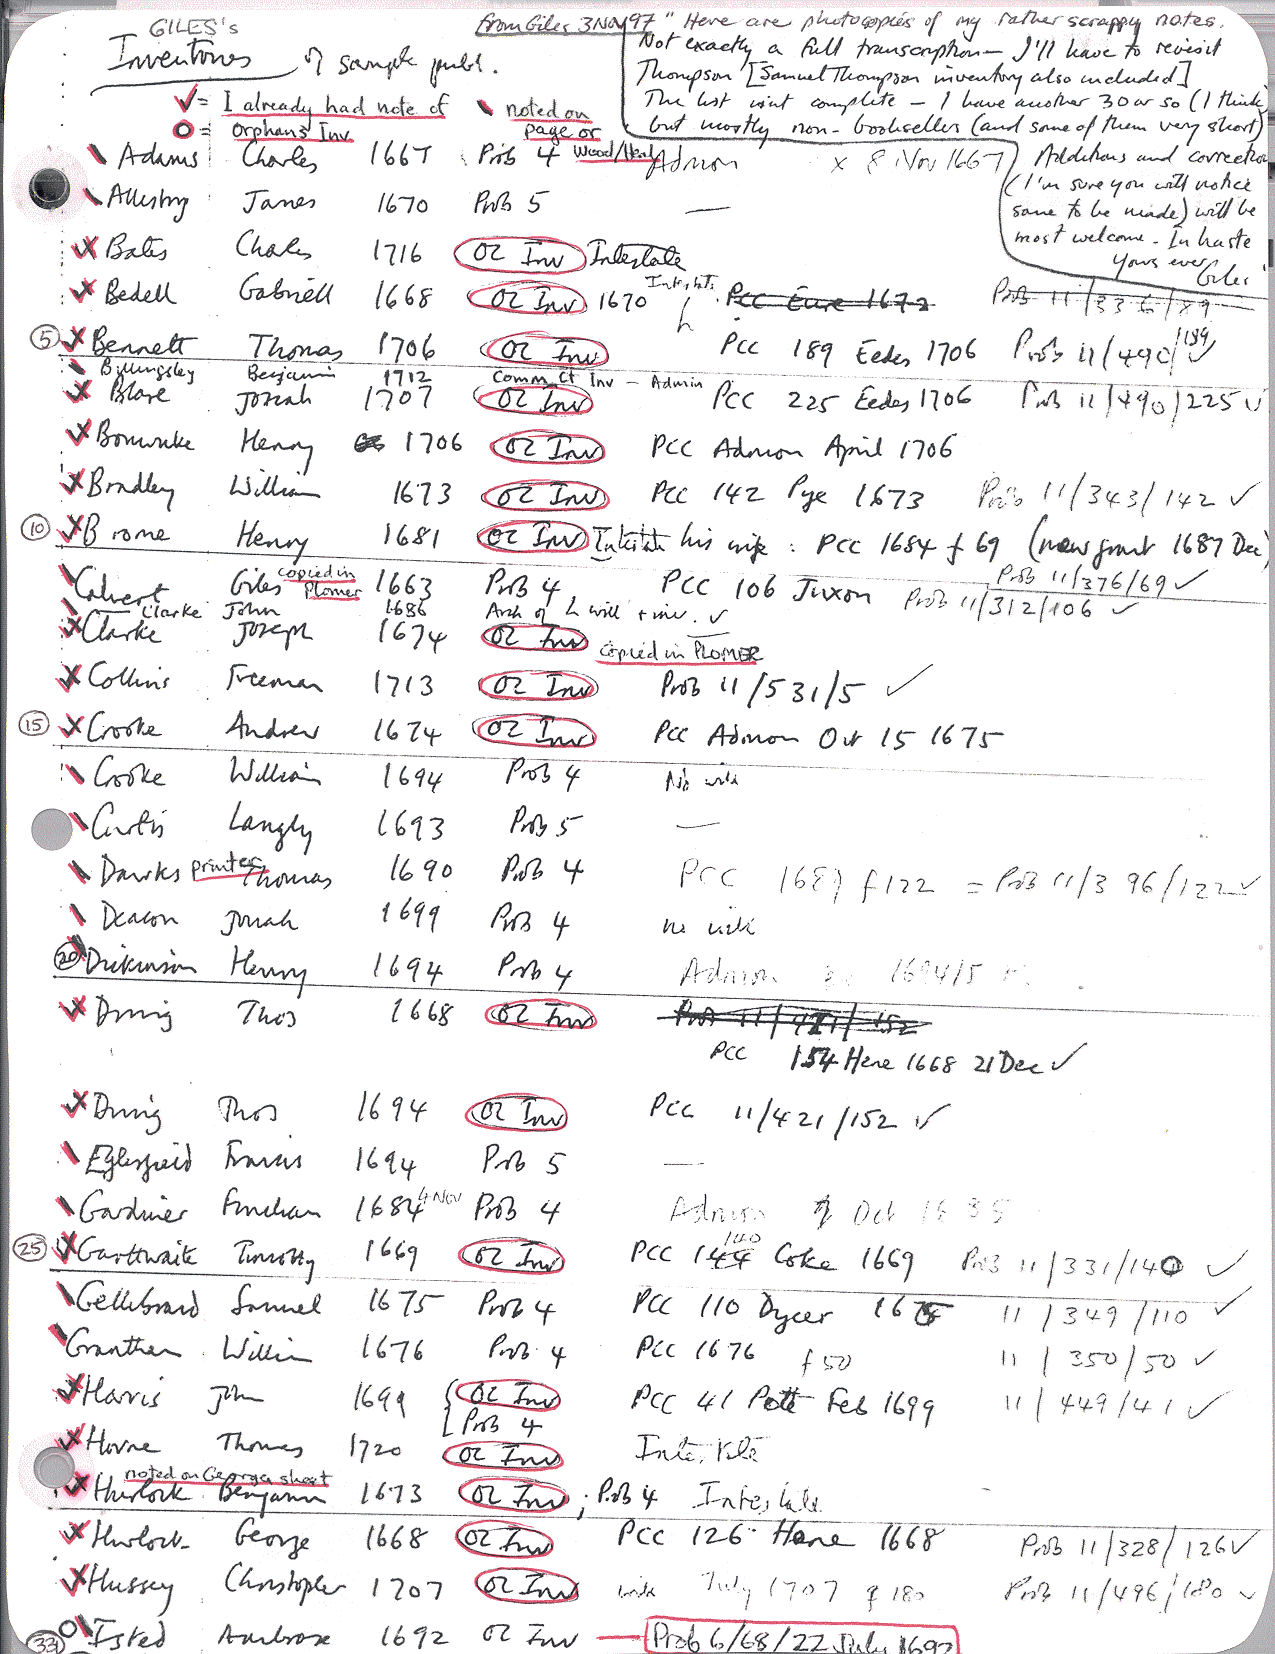 GILES's
Inventories of sample publ.
from Giles 3 Nov 97 "Here are photocopies of my rather scrappy notes.
Not exactly a full transcription - I'll have to revisit
Thompson [Samuel Thompson inventory also included]
The list isn't complete - I have another 30 or so (I think)
but mostly non-booksellers (and some of them very short)
Additions and corrections
(I'm sure you will notice
some to be made) will be
most welcome. In haste
Yours ever
Giles"
✓ = I already had note of
O = Orphans Inv
noted on
page or
Wood/Head
Adams Charles 1667 Prob 4 Admon x 8 Nov 1667
Allestry James 1670 Prob 5 —
Bates Charles 1716 OC Inv Intestate
Bedell Gabriell 1668 OC Inv 1670 Intestate PCC Eure 1672 Prob 11/336/89
5 Bennett Thomas 1706 OC Inv PCC 189 Eedes 1706 Prob 11/490/189 ✓
Billingsley Benjamin 1712 Comm Ct Inv - Admin
Blare Josiah 1707 OC Inv PCC 225 Eedes 1706 Prob 11/490/225 ✓
Bonwicke Henry 1706 OC Inv PCC Admon April 1706
Bradley William 1673 OC Inv PCC 142 Pye 1673 Prob 11/343/142 ✓
10 Brome Henry 1681 OC Inv Intestate his wife: PCC 1684 f 69 (new grant 1687 Dec)
Prob 11/376/69 ✓
Calvert Giles copied in Plomer 1663 Prob 4, PCC 106 Juxon Prob 11/312/106 ✓
Clarke John 1686 Arch of L will + inv. ✓
Clarke Joseph 1674 OC Inv
copied in PLOMER
Collins Freeman 1713 OC Inv Prob 11/531/5 ✓
15 Crooke Andrew 1674 OC Inv PCC Admon Oct 15 1675
Crooke William 1694 Prob 4 No will
Curtis Langly 1693 Prob 5 —
Dawks printer Thomas 1690 Prob 4 PCC 1689 f 122 = Prob 11/396/122 ✓
Deacon Jonah 1699 Prob 4 no will
20 Dickinson Henry 1694 Prob 4 Admon 1694/5
Dring Thos 1668 OC Inv Prob 11/421/152
PCC 154 Hene 1668 21 Dec ✓
Dring Thos 1694 OC Inv PCC 11/421/152 ✓
Eglesfield Francis 1694 Prob 5 —
Gardiner Fincham 1684 4 Nov Prob 4 Admon Oct 1685
25 Garthwaite Timothy 1669 OC Inv PCC 144 140 Coke 1669 Prob 11/331/140 ✓
Gellibrand Samuel 1675 Prob 4 PCC 110 Dycer 1675 11/349/110 ✓
Grantham William 1676 Prob 4 PCC 1676 f 50 11/350/50 ✓
Harris John 1699 OC Inv PCC 41 Pott Feb 1699 11/449/41 ✓
Prob 4
Horne Thomas 1720 OC Inv Intestate
noted on George sheet
Hurlock Benjamin 1673 OC Inv; Prob 4 Intestate
Hurlock George 1668 OC Inv PCC 126 Hene 1668 Prob 11/328/126 ✓
Hussey Christopher 1707 OC Inv will July 1707 f 180 Prob 11/496/180 ✓
33 Isted Ambrose 1692 OC Inv — Prob 6/68/22 July 1692